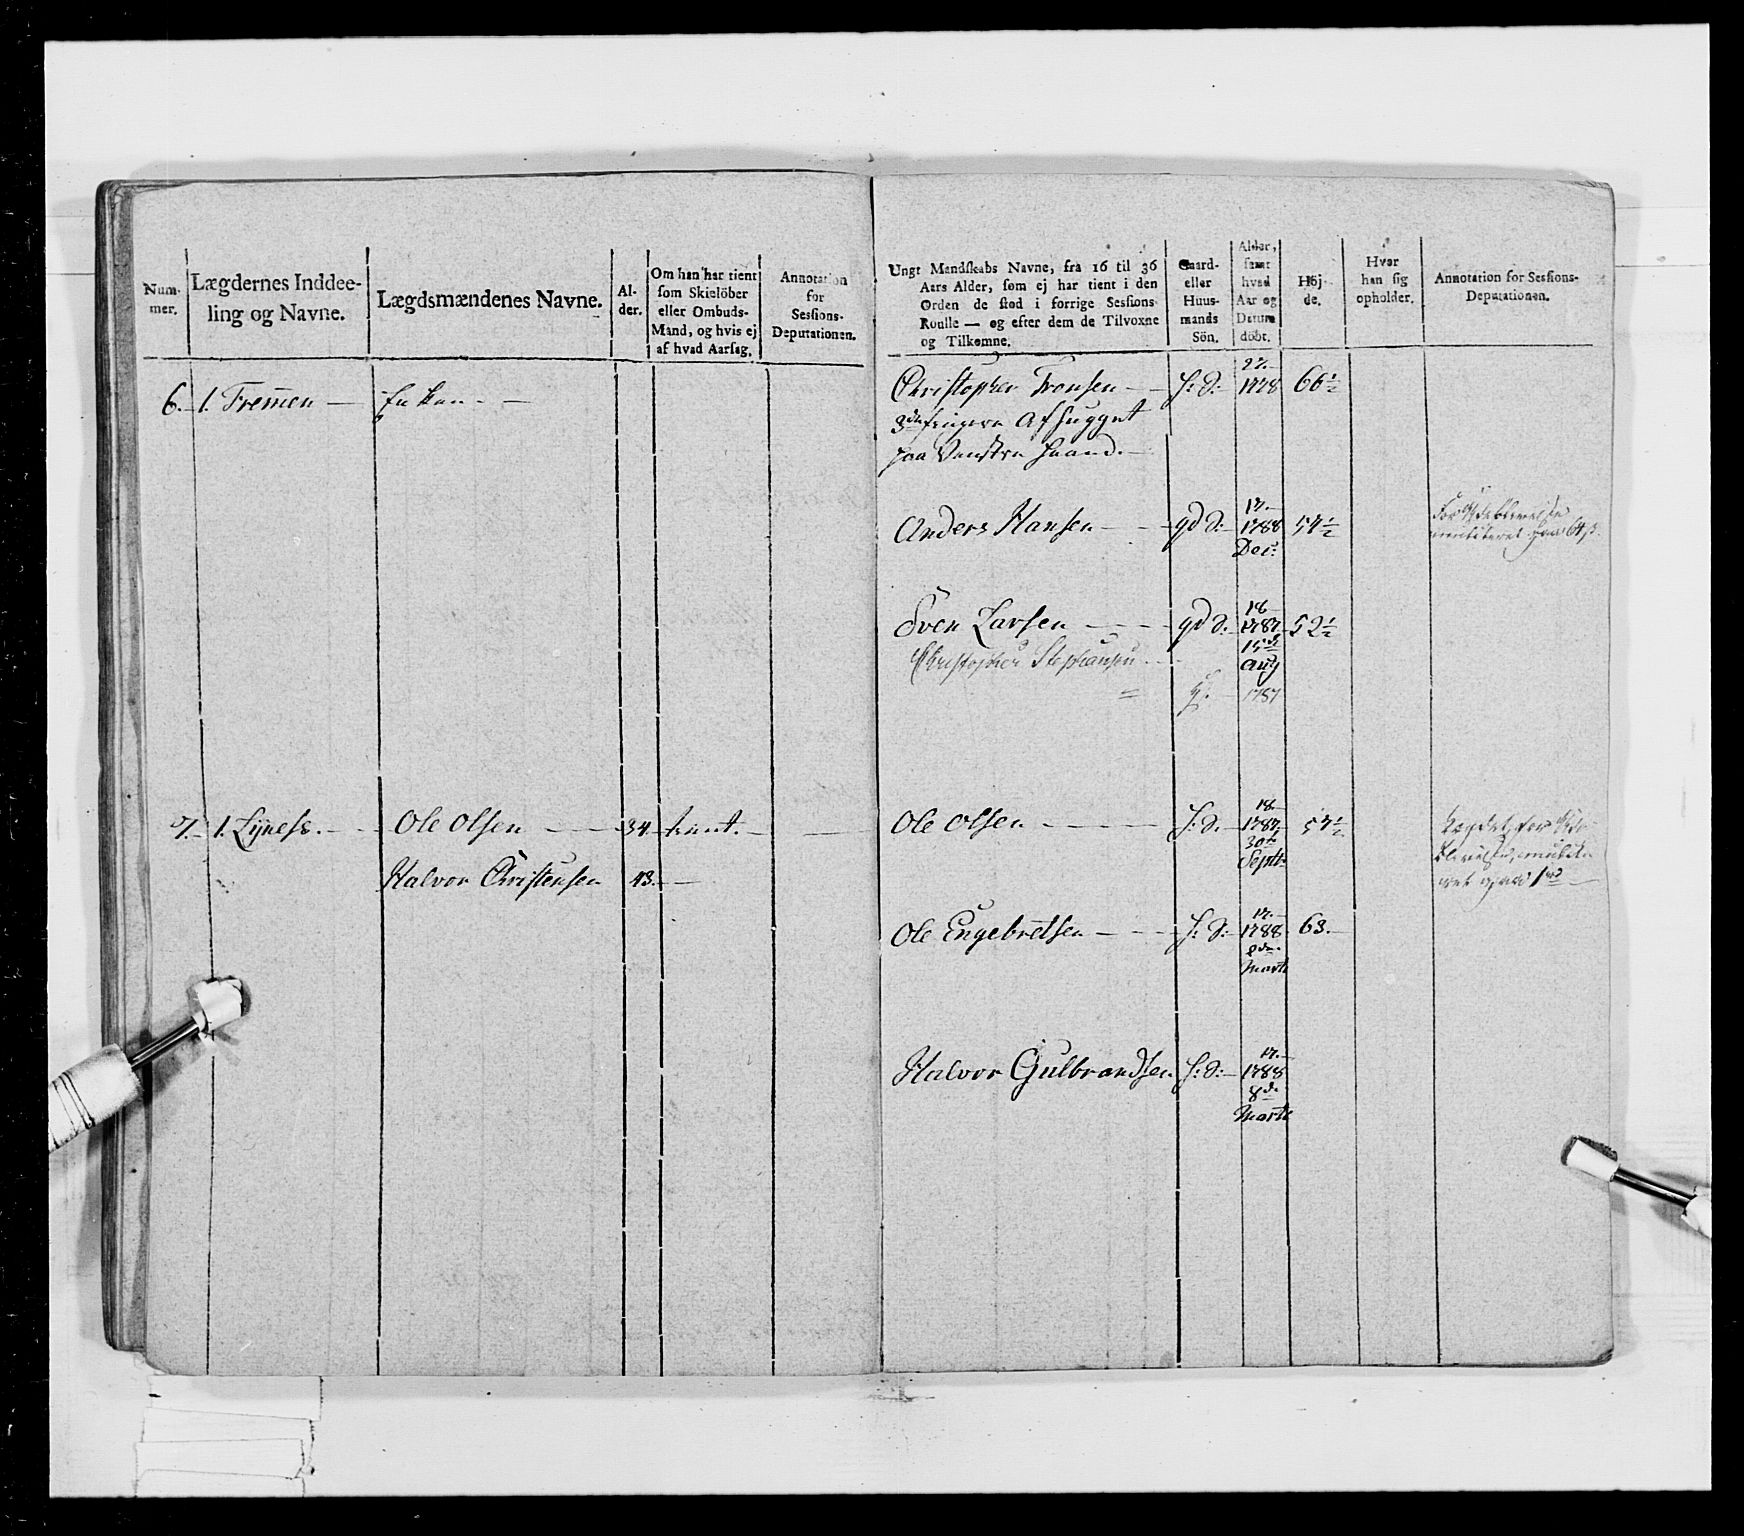 Num-
mer.
Lægdernes Inddee-
ling og Navne.
Lægdsmændenes Navne.
Al-
der.
Om han har tient
som Skielöber
eller Ombuds-
Mand, og hvis ej
af hvad Aarsag.
Annotation
for
Sessions-
Deputationen.
6. 1. Tremen — Enken — —
7. 1. Lyness. — Ole Olsen — 34 tient. —
Halvor Christensen 43. —
Ungt Mandskabs Navne, fra 16 til 36
Aars Alder, som ej har tient i den
Orden de stod i forrige Sessions-
Roulle — og efter dem de Tilvoxne
og Tilkomne.
Gaard-
eller
Huus-
mands
Sön.
Alder,
samt
hvad
Aar og
Datum
döbt.
Höj-
de.
Hvor
han sig
opholder.
Annotation for Sessions-
Deputationen.
27.
Christopher Tronsen — H: S: 1778 66½
3de fingere Afhugget
paa Venstre Haand. —
17.
Anders Hansen — gd S: 1788 57½
Dec:
18
Sven Larsen — gd S: 1787 52½
15de
Aug
Christopher Stephansen
= H. 1787
18.
Ole Olsen — H: S: 1787 57½
30te
Septr.
17.
Ole Engebretsen — H: S: 1788 63.
Marti
17.
Halvor Gulbrandsen H: S: 1788
8de
Marti